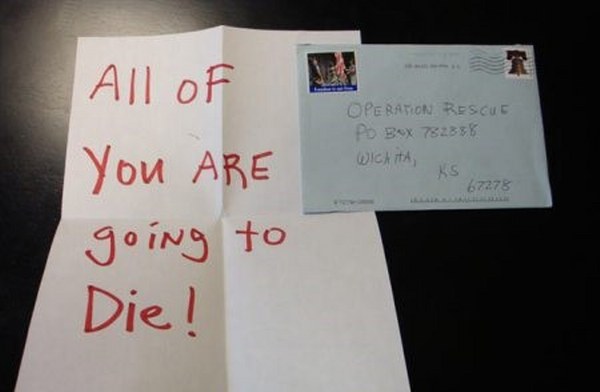 All OF
You ARE
going to
Die!
OPERATION RESCUE
PO BOX 782888
WICHITA,
KS
67278